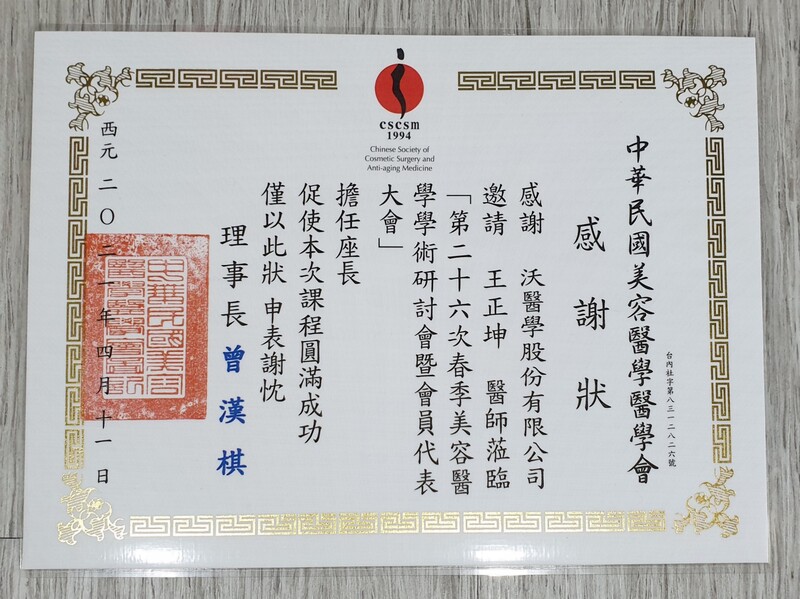 cscsm
1994
Chinese Society of
Cosmetic Surgery and
Anti-aging Medicine
中華民國美容醫學醫學會
台內社字第八三一二八二六號
感謝狀
感謝 沃醫學股份有限公司
邀請 王正坤 醫師蒞臨
「第二十六次春季美容醫
學學術研討會暨會員代表
大會」
擔任座長
促使本次課程圓滿成功
僅以此狀 申表謝忱
理事長 曾漢棋
西元 二〇二一年 四月 十一日
中華民國美容
醫學醫學會圖記